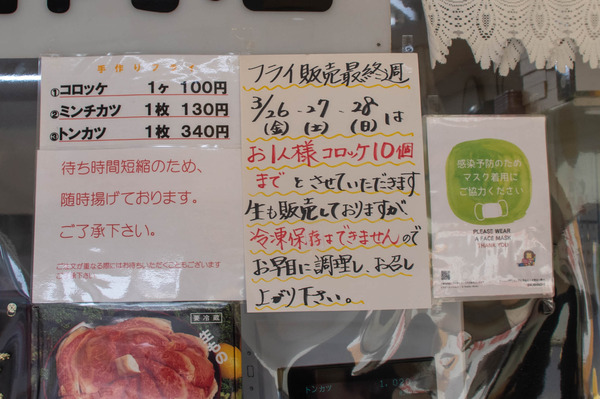 手作りフライ
①コロッケ 1ヶ 100円
②ミンチカツ 1枚 130円
③トンカツ 1枚 340円
待ち時間短縮のため、
随時揚げております。
ご了承下さい。
ご注文が重なる際にはお待ちいただくこともございます
フライ販売最終週
3/26・27・28は
(金)(土)(日)
お1人様コロッケ10個
までとさせていただきます
生も販売しておりますが、
冷凍保存はできませんので
お早目に調理し、お召し
上がり下さい。
感染予防のため
マスク着用に
ご協力ください
PLEASE WEAR
A FACE MASK
THANK YOU
要冷蔵
トンカツ